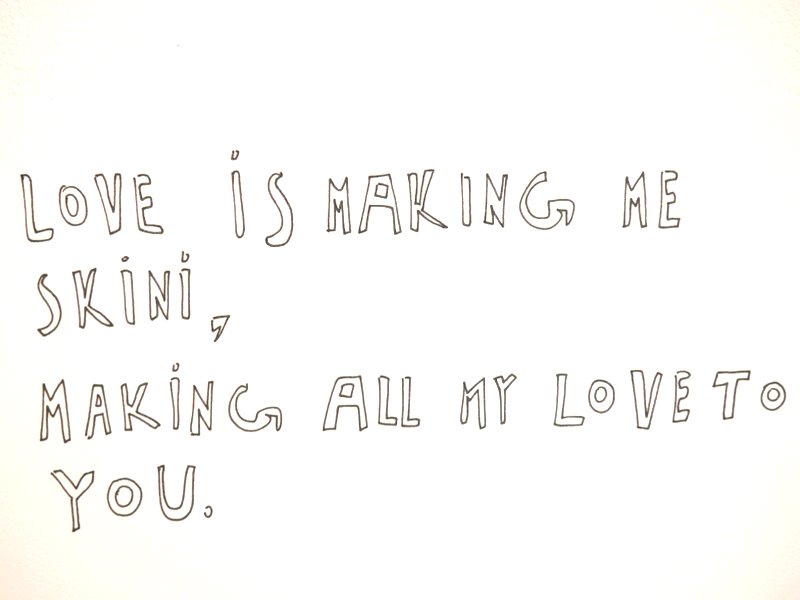 LOVE iS MAKING ME
SKiNi,
MAKiNG ALL MY LOVE TO
YOU.